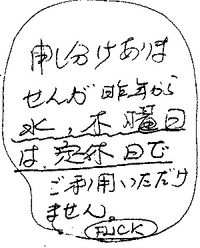 申し分けありま
せんが昨年から
水、木曜日
は、定休日で
ご利用いただけ
ません。
FUCK